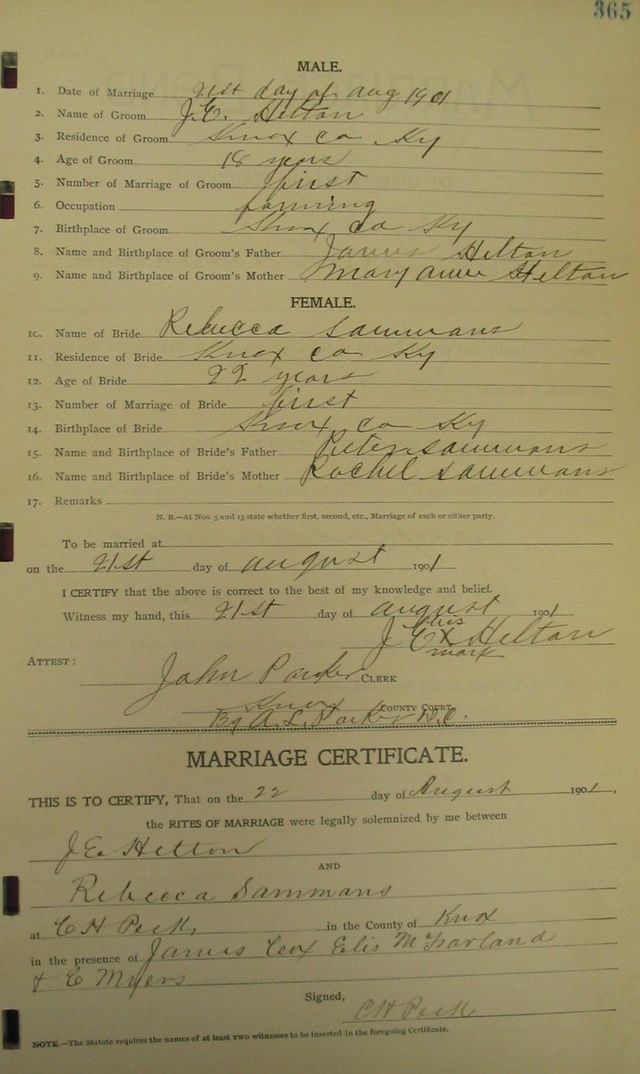 365
MALE.
1. Date of Marriage 21st day of Aug 1901
2. Name of Groom J.E. Helton
3. Residence of Groom Knox co Ky
4. Age of Groom 18 years
5. Number of Marriage of Groom first
6. Occupation farming
7. Birthplace of Groom Knox co Ky
8. Name and Birthplace of Groom's Father James Helton
9. Name and Birthplace of Groom's Mother Mary anne Helton
FEMALE.
10. Name of Bride Rebecca Sammons
11. Residence of Bride Knox co Ky
12. Age of Bride 22 years
13. Number of Marriage of Bride first
14. Birthplace of Bride Knox co Ky
15. Name and Birthplace of Bride's Father Peter Sammons
16. Name and Birthplace of Bride's Mother Rachel Sammons
17. Remarks
N. B.—At Nos. 5 and 13 state whether first, second, etc., Marriage of each or either party.
To be married at
on the 21st day of august 1901
I CERTIFY that the above is correct to the best of my knowledge and belief.
Witness my hand, this 21st day of august 1901
his
J E x Helton
mark
ATTEST: John Parker CLERK
Knox COUNTY COURT.
By A. L. Parker D.C.
MARRIAGE CERTIFICATE.
THIS IS TO CERTIFY, That on the 22 day of August 1901,
the RITES OF MARRIAGE were legally solemnized by me between
J E Helton
AND
Rebecca Sammans
at C H Peek, in the County of Knox
in the presence of James Cox Elis McFarland
& E Myers
Signed,
C H Peek
NOTE.—The Statute requires the names of at least two witnesses to be inserted in the foregoing Certificate.